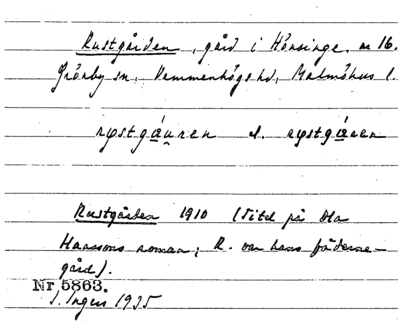 Rustgården, gård i Hönsinge, nr 16.
Grönby sn, Vemmenhögs hd, Malmöhus l.
røstgáu̯ren l. røstgáren
Rustgården 1910 (Titel på Ola
Hanssons roman; R. var hans fäderne-
gård).
Nr 5863.
I. Ingers 1925